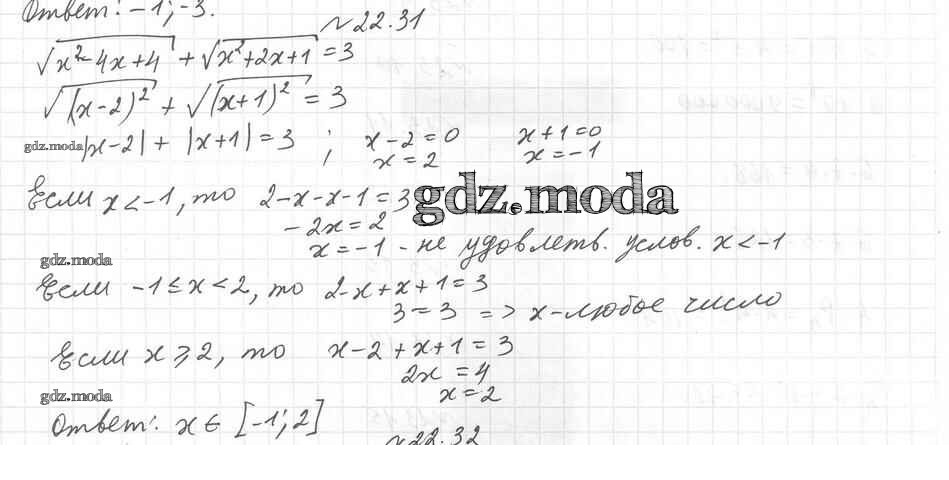 Ответ: -1; -3.
№22.31
√(x²-4x+4) + √(x²+2x+1) = 3
√((x-2)²) + √((x+1)²) = 3
gdz.moda |x-2| + |x+1| = 3 ; x-2=0 x+1=0
x=2 x=-1
Если x<-1, то 2-x-x-1=3
gdz.moda
-2x=2
x=-1 - не удовлетв. услов. x<-1
gdz.moda
Если -1≤x<2, то 2-x+x+1=3
3=3 => x-любое число
Если x≥2, то x-2+x+1=3
2x=4
gdz.moda x=2
Ответ: x∈[-1;2]
№22.32